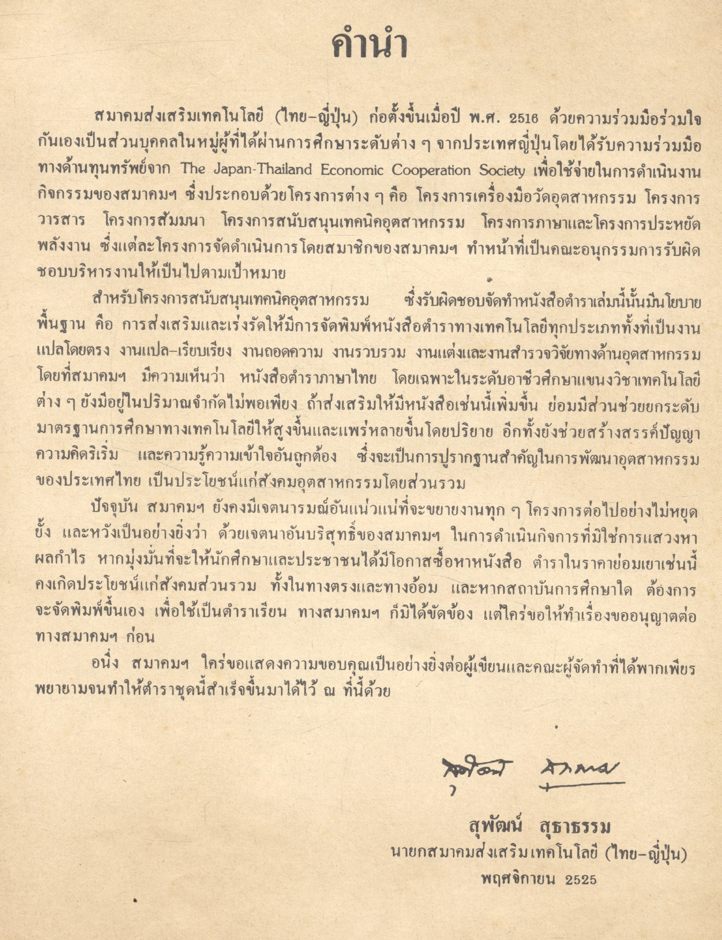 คำนำ
สมาคมส่งเสริมเทคโนโลยี (ไทย-ญี่ปุ่น) ก่อตั้งขึ้นเมื่อปี พ.ศ. 2516 ด้วยความร่วมมือร่วมใจ
กันเองเป็นส่วนบุคคลในหมู่ผู้ที่ได้ผ่านการศึกษาระดับต่าง ๆ จากประเทศญี่ปุ่นโดยได้รับความร่วมมือ
ทางด้านทุนทรัพย์จาก The Japan-Thailand Economic Cooperation Society เพื่อใช้จ่ายในการดำเนินงาน
กิจกรรมของสมาคมฯ ซึ่งประกอบด้วยโครงการต่าง ๆ คือ โครงการเครื่องมือวัดอุตสาหกรรม โครงการ
วารสาร โครงการสัมมนา โครงการสนับสนุนเทคนิคอุตสาหกรรม โครงการภาษาและโครงการประหยัด
พลังงาน ซึ่งแต่ละโครงการจัดดำเนินการโดยสมาชิกของสมาคมฯ ทำหน้าที่เป็นคณะอนุกรรมการรับผิด
ชอบบริหารงานให้เป็นไปตามเป้าหมาย
สำหรับโครงการสนับสนุนเทคนิคอุตสาหกรรม ซึ่งรับผิดชอบจัดทำหนังสือตำราเล่มนี้นั้นมีนโยบาย
พื้นฐาน คือ การส่งเสริมและเร่งรัดให้มีการจัดพิมพ์หนังสือตำราทางเทคโนโลยีทุกประเภททั้งที่เป็นงาน
แปลโดยตรง งานแปล-เรียบเรียง งานถอดความ งานรวบรวม งานแต่งและงานสำรวจวิจัยทางด้านอุตสาหกรรม
โดยที่สมาคมฯ มีความเห็นว่า หนังสือตำราภาษาไทย โดยเฉพาะในระดับอาชีวศึกษาแขนงวิชาเทคโนโลยี
ต่าง ๆ ยังมีอยู่ในปริมาณจำกัดไม่พอเพียง ถ้าส่งเสริมให้มีหนังสือเช่นนี้เพิ่มขึ้น ย่อมมีส่วนช่วยยกระดับ
มาตรฐานการศึกษาทางเทคโนโลยีให้สูงขึ้นและแพร่หลายขึ้นโดยปริยาย อีกทั้งยังช่วยสร้างสรรค์ปัญญา
ความคิดริเริ่ม และความรู้ความเข้าใจอันถูกต้อง ซึ่งจะเป็นการปูรากฐานสำคัญในการพัฒนาอุตสาหกรรม
ของประเทศไทย เป็นประโยชน์แก่สังคมอุตสาหกรรมโดยส่วนรวม
ปัจจุบัน สมาคมฯ ยังคงมีเจตนารมณ์อันแน่วแน่ที่จะขยายงานทุก ๆ โครงการต่อไปอย่างไม่หยุด
ยั้ง และหวังเป็นอย่างยิ่งว่า ด้วยเจตนาอันบริสุทธิ์ของสมาคมฯ ในการดำเนินกิจการที่มิใช่การแสวงหา
ผลกำไร หากมุ่งมั่นที่จะให้นักศึกษาและประชาชนได้มีโอกาสซื้อหาหนังสือ ตำราในราคาย่อมเยาเช่นนี้
คงเกิดประโยชน์แก่สังคมส่วนรวม ทั้งในทางตรงและทางอ้อม และหากสถาบันการศึกษาใด ต้องการ
จะจัดพิมพ์ขึ้นเอง เพื่อใช้เป็นตำราเรียน ทางสมาคมฯ ก็มิได้ขัดข้อง แต่ใคร่ขอให้ทำเรื่องขออนุญาตต่อ
ทางสมาคมฯ ก่อน
อนึ่ง สมาคมฯ ใคร่ขอแสดงความขอบคุณเป็นอย่างยิ่งต่อผู้เขียนและคณะผู้จัดทำที่ได้พากเพียร
พยายามจนทำให้ตำราชุดนี้สำเร็จขึ้นมาได้ไว้ ณ ที่นี้ด้วย
สุพัฒน์ สุธาธรรม
นายกสมาคมส่งเสริมเทคโนโลยี (ไทย-ญี่ปุ่น)
พฤศจิกายน 2525